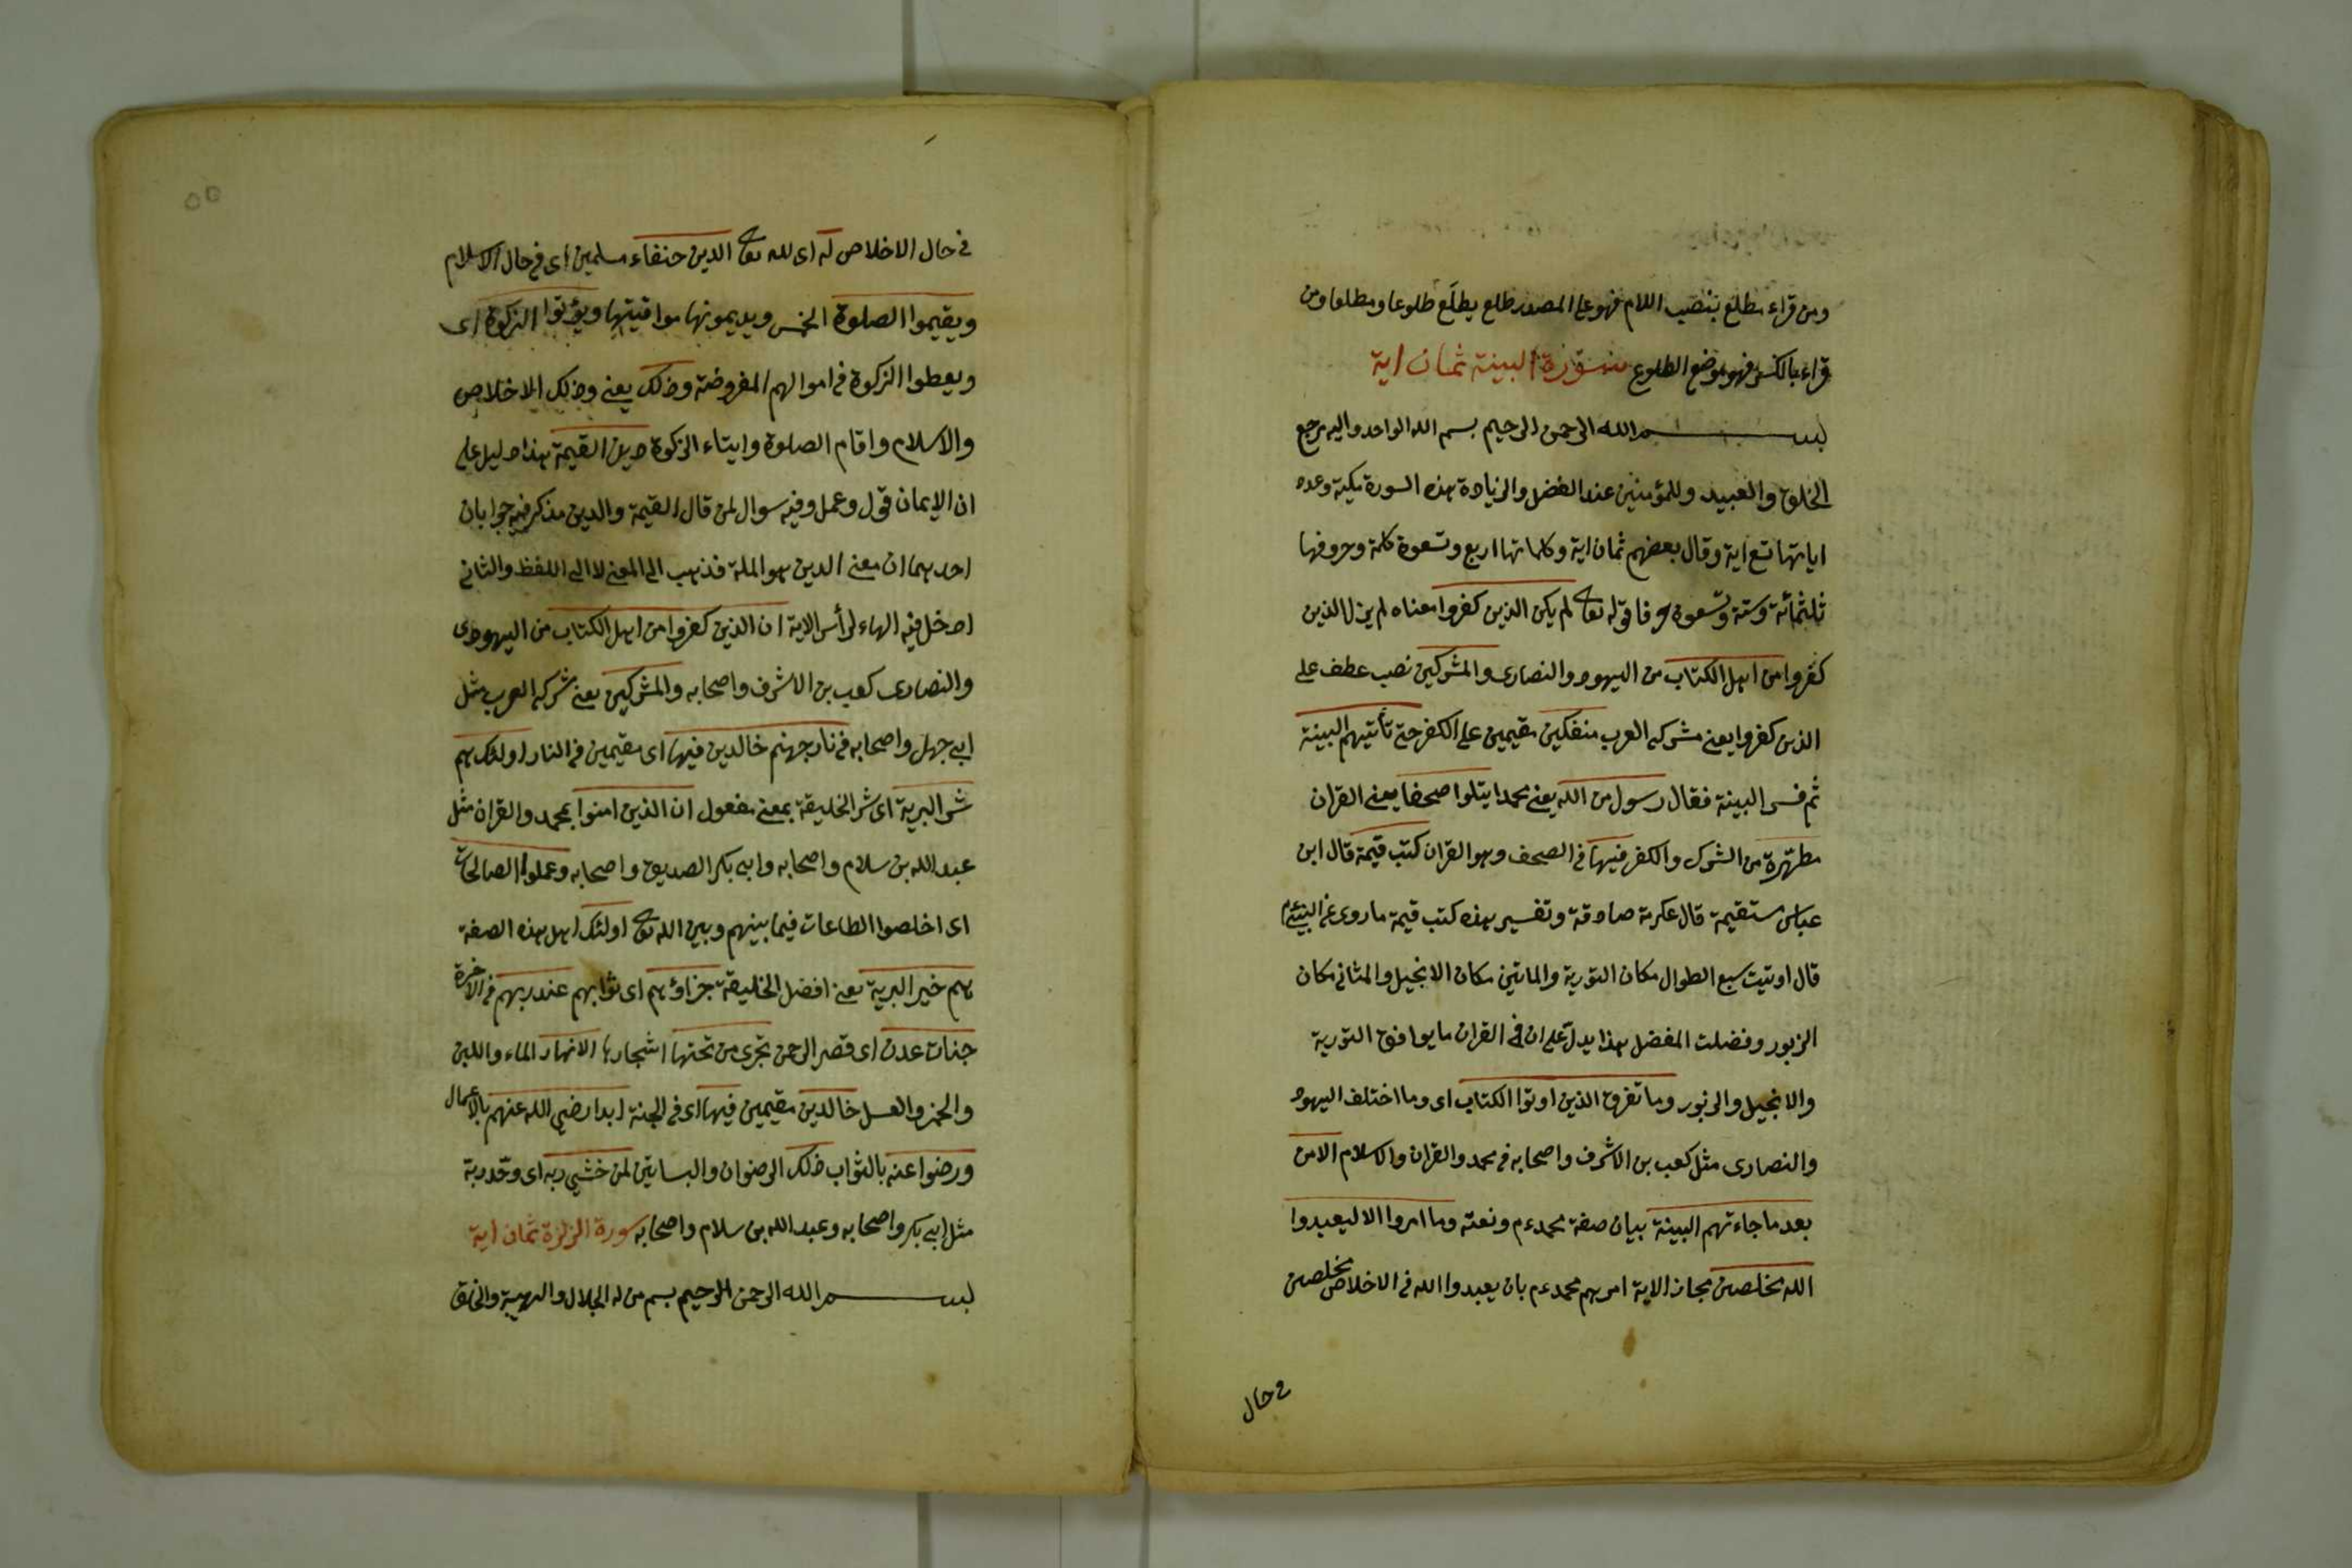 ومن قراء مطلع بنصب اللام فهو على المصدر طلع يطلع طلوعا ومطلعا ومن
قراء بالكسر فهو موضع الطلوع سورة البينة ثمان اية
بسم الله الرحمن الرحيم بسم الله الواحد واليه مرجع
الخلق والعبيد وللمؤمنين عند الفضل والزيادة هذه السورة مكية وعدد
اياتها تسع اية وقال بعضهم ثمان اية وكلماتها اربع وتسعون كلمة وحروفها
ثلثمائة وستة وتسعون حرفا قوله تعا لم يكن الذين كفروا معناه لم يزل الذين
كفروا من اهل الكتاب من اليهود والنصارى والمشركين نصب عطف على
الذين كفروا يعنى مشركى العرب منفكين مقيمين على الكفر حتى تأتيهم البينة
ثم فسر البينة فقال رسول من الله يعنى محمدا يتلوا صحفا يعنى القران
مطهرة من الشرك والكفر فيها فى الصحف وهو القران كتب قيمة قال ابن
عباس مستقيمة قال عكرمة صادقة وتفسير هذه كتب قيمة ما روى عن النبى عم
قال اوتيت سبع الطوال مكان التورية والماتين مكان الانجيل والمثانى مكان
الزبور وفضلت المفضل هذا يدل على ان فى القران ما يوافق التورية
والانجيل والزبور وما تفرق الذين اوتوا الكتاب اى وما اختلف اليهود
والنصارى مثل كعب بن الاشرف واصحابه فى محمد والقران والاسلام الا من
بعد ما جاءتهم البينة بيان صفة محمد عم ونعته وما امروا الا ليعبدوا
الله مخلصين مجاز الاية امرهم محمد عم بان يعبدوا الله فى الاخلاص مخلصين
فى حال
فى حال الاخلاص له اى لله تعا الدين حنفاء مسلمين اى فى حال الاسلام
ويقيموا الصلوة الخمس ويديمونها مواقيتها ويؤتوا الزكوة اى
ويعطوا الزكوة فى اموالهم المفروضة وذلك يعنى وذلك الاخلاص
والاسلام واقام الصلوة وايتاء الزكوة دين القيمة هذا دليل على
ان الايمان قول وعمل وفيه سوال لمن قال القيمة والدين مذكر فيه جوابان
احدهما ان معنى الدين هو الملة فذهب الى المعنى لا الى اللفظ والثانى
ادخل فيه الهاء لرأس الاية ان الذين كفروا من اهل الكتاب من اليهودى
والنصارى كعب بن الاشرف واصحابه والمشركين يعنى مشركى العرب مثل
ابى جهل واصحابه فى نار جهنم خالدين فيها اى مقيمين فى النار اولئك هم
شر البرية اى شر الخليقة بمعنى مفعول ان الذين امنوا بمحمد والقران مثل
عبد الله بن سلام واصحابه وابى بكر الصديق واصحابه وعملوا الصالحات
اى اخلصوا الطاعات فيما بينهم وبين الله تعا اولئك اهل هذه الصفة
هم خير البرية يعنى افضل الخليقة جزاؤهم اى ثوابهم عند ربهم فى الاخرة
جنات عدن اى قصر الرحمن تجرى من تحتها اشجارها الانهار الماء واللبن
والخمر والعسل خالدين مقيمين فيها اى فى الجنة ابدا رضى الله عنهم بالاعمال
ورضوا عنه بالثواب ذلك الرضوان والبساتين لمن خشى ربه اى وحد ربه
مثل ابى بكر واصحابه وعبد الله بن سلام واصحابه سورة الزلزة ثمان اية
بسم الله الرحمن الرحيم بسم من له الجلال والهيبة